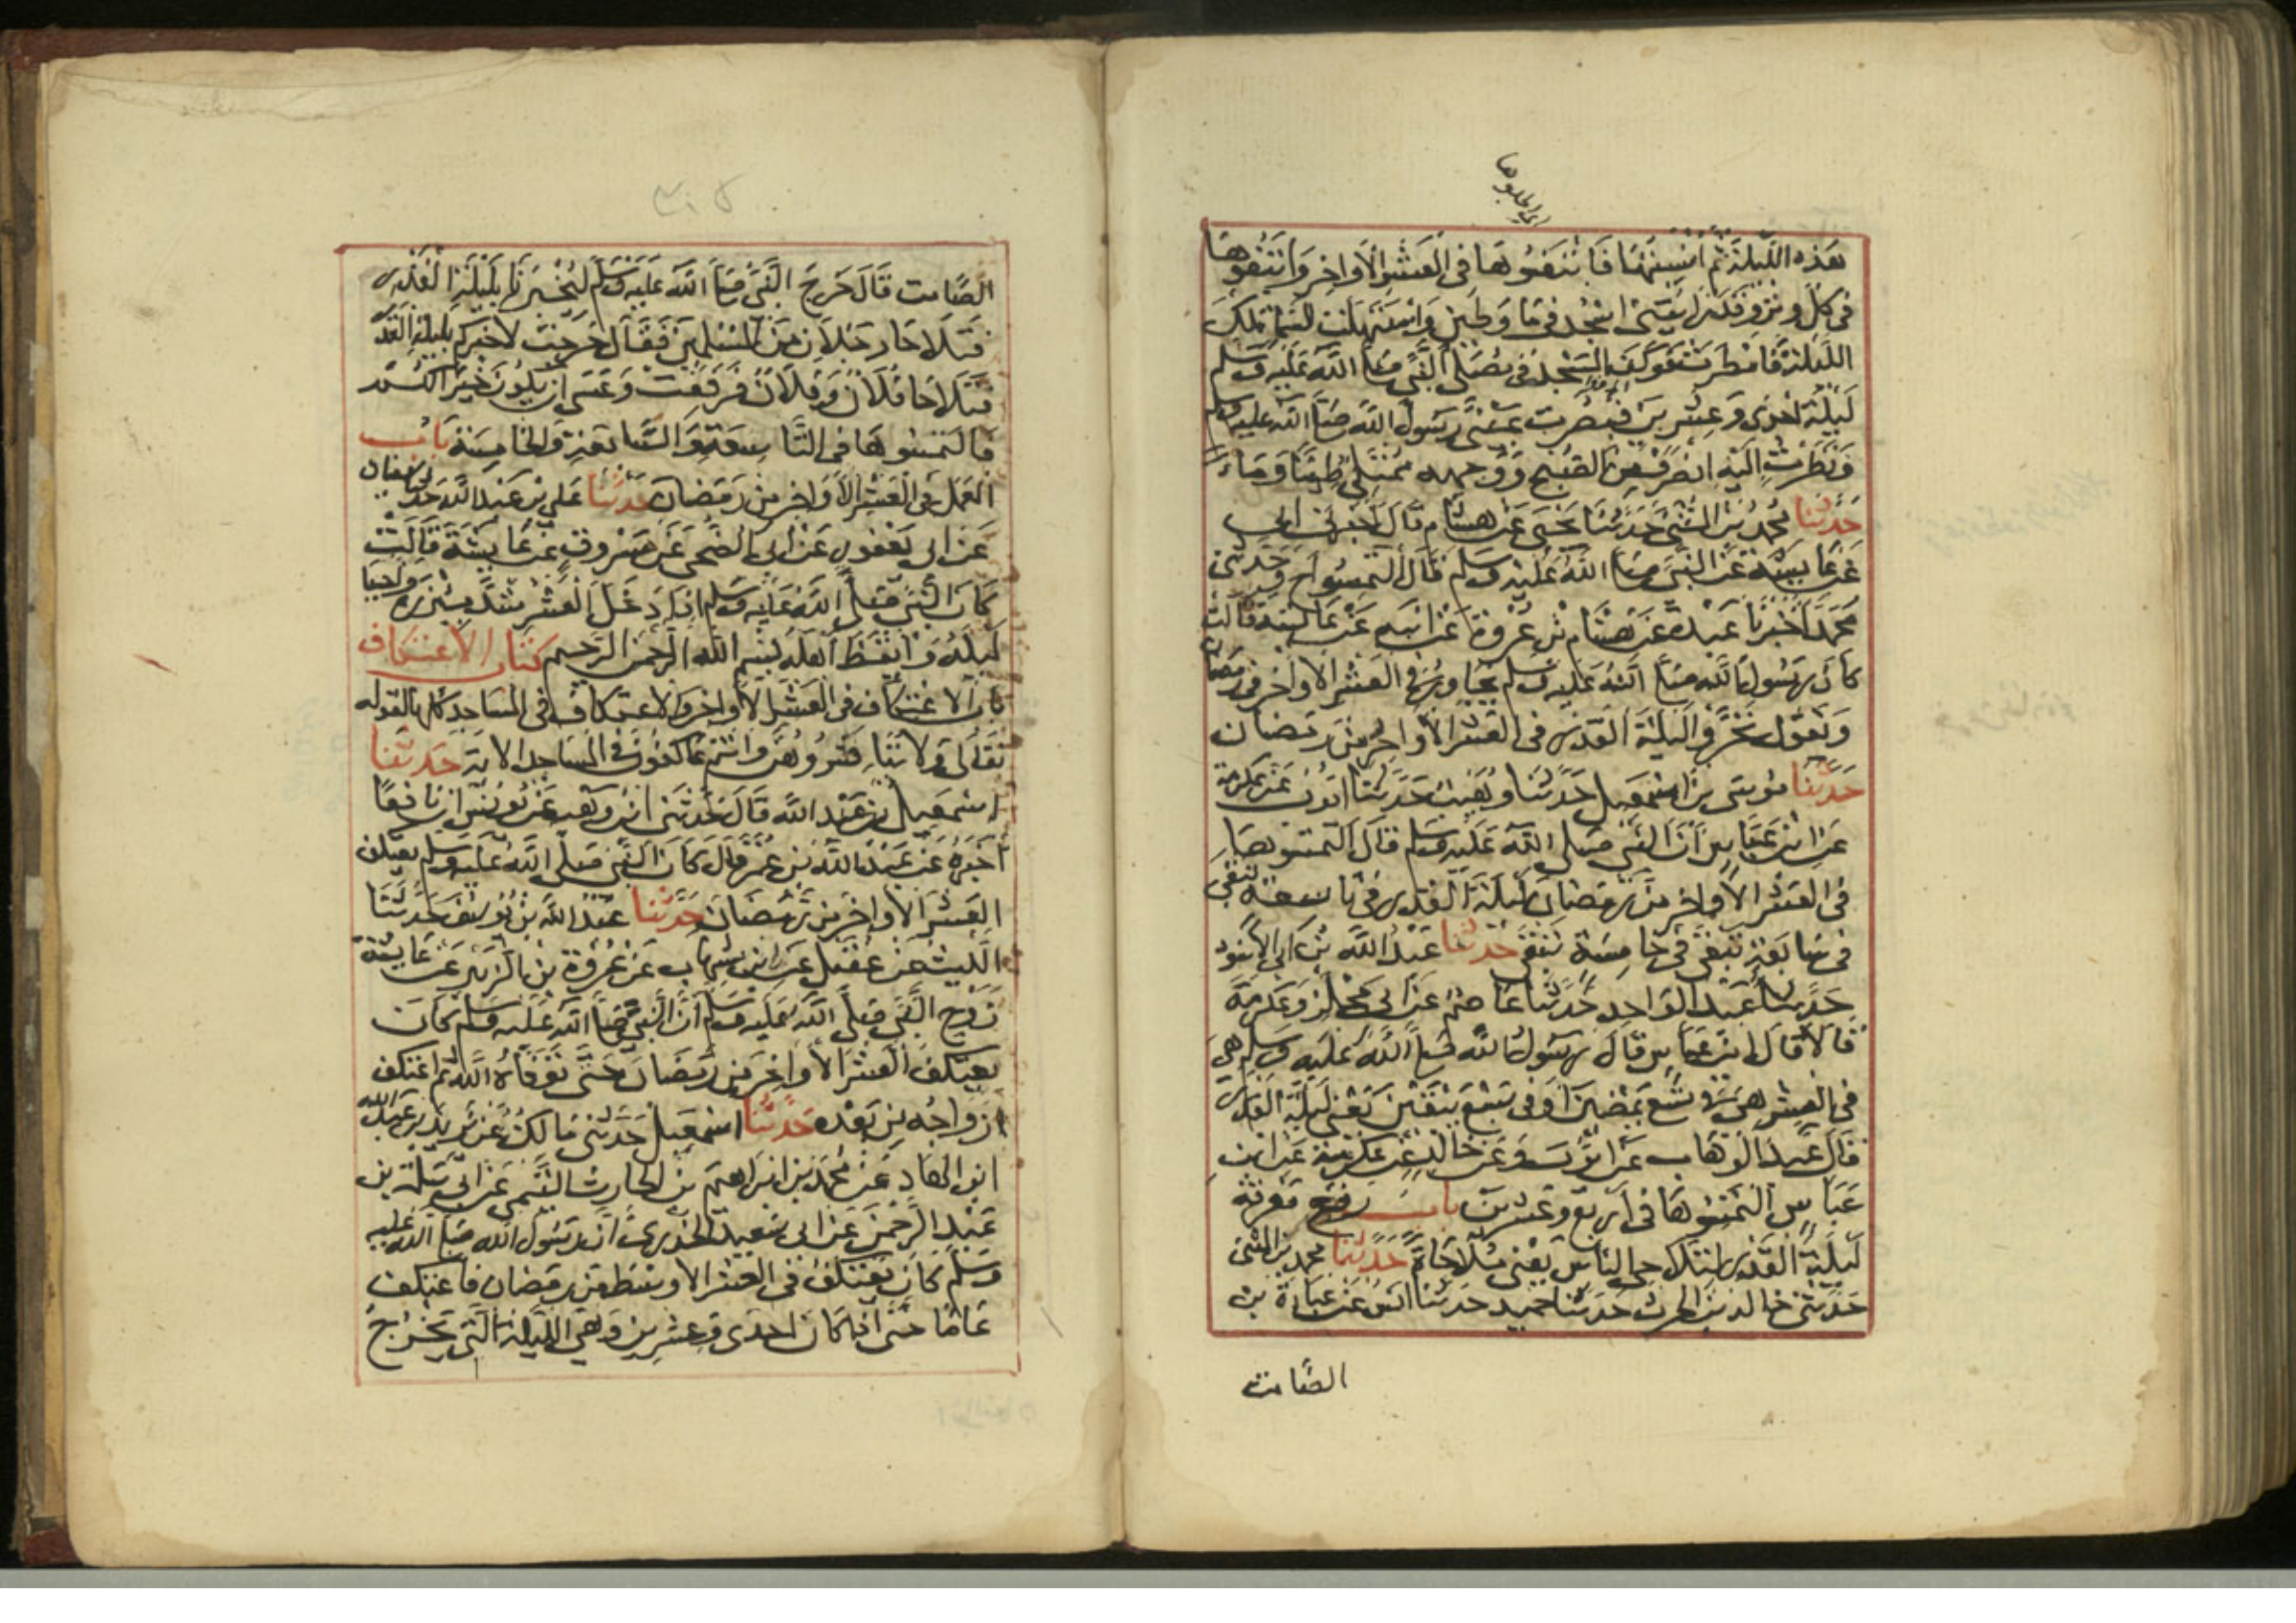 اي اطلبوها
هذه الليلة ثم انسيتها فابتغوها في العشر الاواخر وابتغوها
في كل وتر وقد رايتني اسجد في ماء وطين واستهلت السماء تلك
الليلة فامطرت فوكف المسجد في مصلى النبي صلى الله عليه وسلم
ليلة احدى وعشرين فبصرت عيني رسول الله صلى الله عليه وسلم
ونظرت اليه انصرف من الصبح ووجهه ممتلئ طينا وماء
حدثنا محمد بن المثنى حدثنا يحيى عن هشام قال اخبرني ابي
عن عايشة عن النبي صلى الله عليه وسلم قال التمسوا ح وحدثني
محمد اخبرنا عبدة عن هشام بن عروة عن ابيه عن عايشة قالت
كان رسول الله صلى الله عليه وسلم يجاور في العشر الاواخر من رمضان
ويقول تحروا ليلة القدر في العشر الاواخر من رمضان
حدثنا موسى بن اسمعيل حدثنا وهيب حدثنا ايوب عن عكرمة
عن ابن عباس ان النبي صلى الله عليه وسلم قال التمسوها
في العشر الاواخر من رمضان ليلة القدر في تاسعة تبقى
في سابعة تبقى في خامسة تبقى حدثنا عبد الله بن ابي الاسود
حدثنا عبد الواحد حدثنا عاصم عن ابي مجلز وعكرمة
قالا قال ابن عباس قال رسول الله صلى الله عليه وسلم هي
في العشر هي في تسع يمضين او في سبع يبقين يعني ليلة القدر
قال عبد الوهاب عن ايوب وعن خالد عن عكرمة عن ابن
عباس التمسوها في اربع وعشرين باب رفع معرفة
ليلة القدر لتلاحي الناس يعني ملاحاة حدثنا محمد بن المثنى
حدثني خالد بن الحرث حدثنا حميد حدثنا انس عن عبادة بن
الصامت
الصامت قال خرج النبي صلى الله عليه وسلم ليخبرنا بليلة القدر
فتلاحا رجلان من المسلمين فقال خرجت لاخبركم بليلة القدر
فتلاحا فلان وفلان فرفعت وعسى ان يكون خيرا لكم
فالتمسوها في التاسعة والسابعة والخامسة باب
العمل في العشر الاواخر من رمضان حدثنا علي بن عبد الله حدثنا سفيان
عن ابي يعفور عن ابي الضحى عن مسروق عن عايشة قالت
كان النبي صلى الله عليه وسلم اذا دخل العشر شد ميزره واحيا
ليله وايقظ اهله بسم الله الرحمن الرحيم كتاب الاعتكاف
باب الاعتكاف في العشر الاواخر والاعتكاف في المساجد كلها لقوله
تعالى ولا تباشروهن وانتم عاكفون في المساجد الاية حدثنا
اسمعيل بن عبد الله قال حدثني ابن وهب عن يونس ان نافعا
اخبره عن عبد الله بن عمر قال كان النبي صلى الله عليه وسلم يعتكف
العشر الاواخر من رمضان حدثنا عبد الله بن يوسف حدثنا
الليث عن عقيل عن ابن شهاب عن عروة بن الزبير عن عايشة
زوج النبي صلى الله عليه وسلم ان النبي صلى الله عليه وسلم كان
يعتكف العشر الاواخر من رمضان حتى توفاه الله ثم اعتكف
ازواجه من بعده حدثنا اسمعيل حدثني مالك عن يزيد بن عبد الله
ابن الهاد عن محمد بن ابراهيم بن الحارث التيمي عن ابي سلمة بن
عبد الرحمن عن ابي سعيد الخدري ان رسول الله صلى الله عليه
وسلم كان يعتكف في العشر الاوسط من رمضان فاعتكف
عاما حتى اذا كان احدى وعشرين وهي الليلة التي يخرج